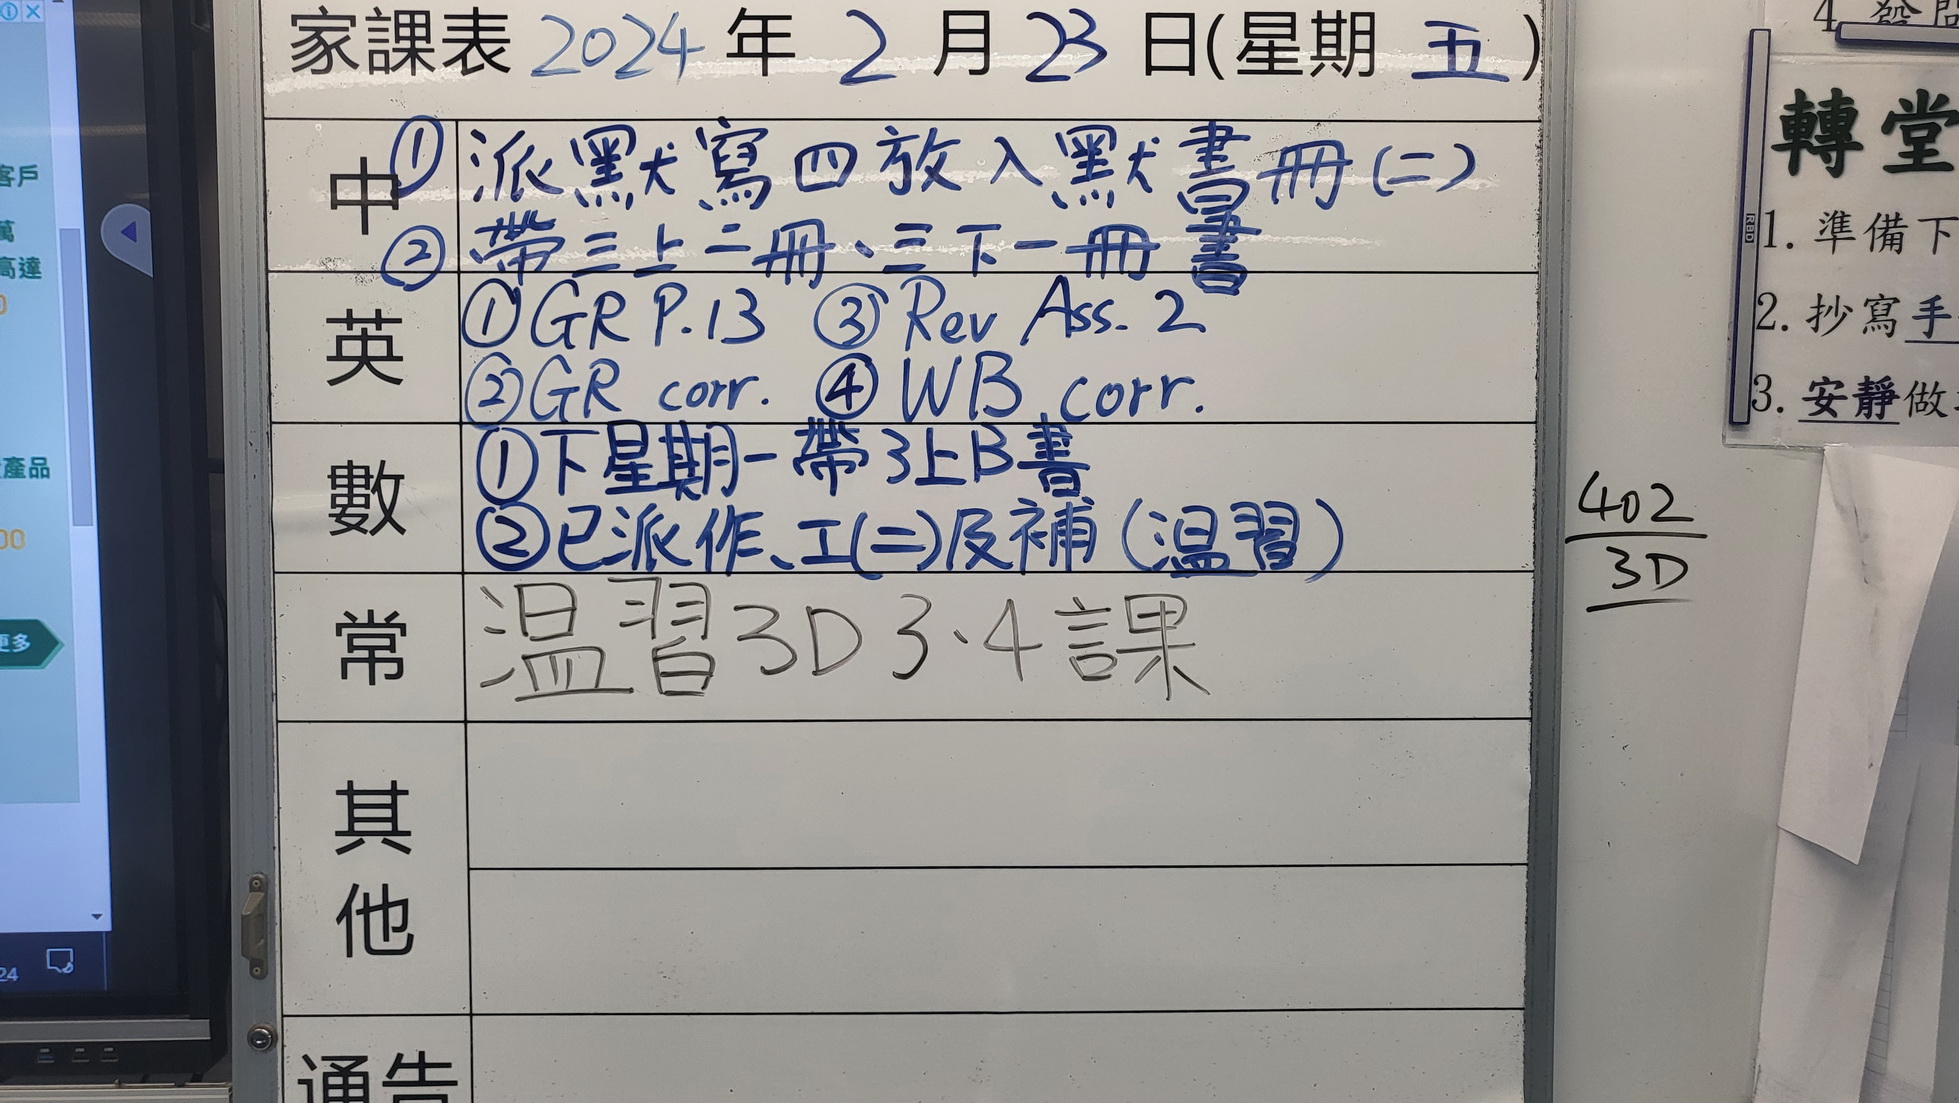 家課表 2024 年 2 月 23 日(星期 五)
中
① 派默寫四放入默書冊(二)
② 帶三上二冊、三下一冊書
英
① GR P.13 ③ Rev Ass. 2
② GR corr. ④ WB corr.
數
① 下星期一帶3上B書
② 已派作、工(二)及補(温習)
常
温習3D 3、4課
其他
通告
402
3D
轉堂
1. 準備下
2. 抄寫手
3. 安靜做
4
客戶
萬
高達
0
產品
00
更多
24